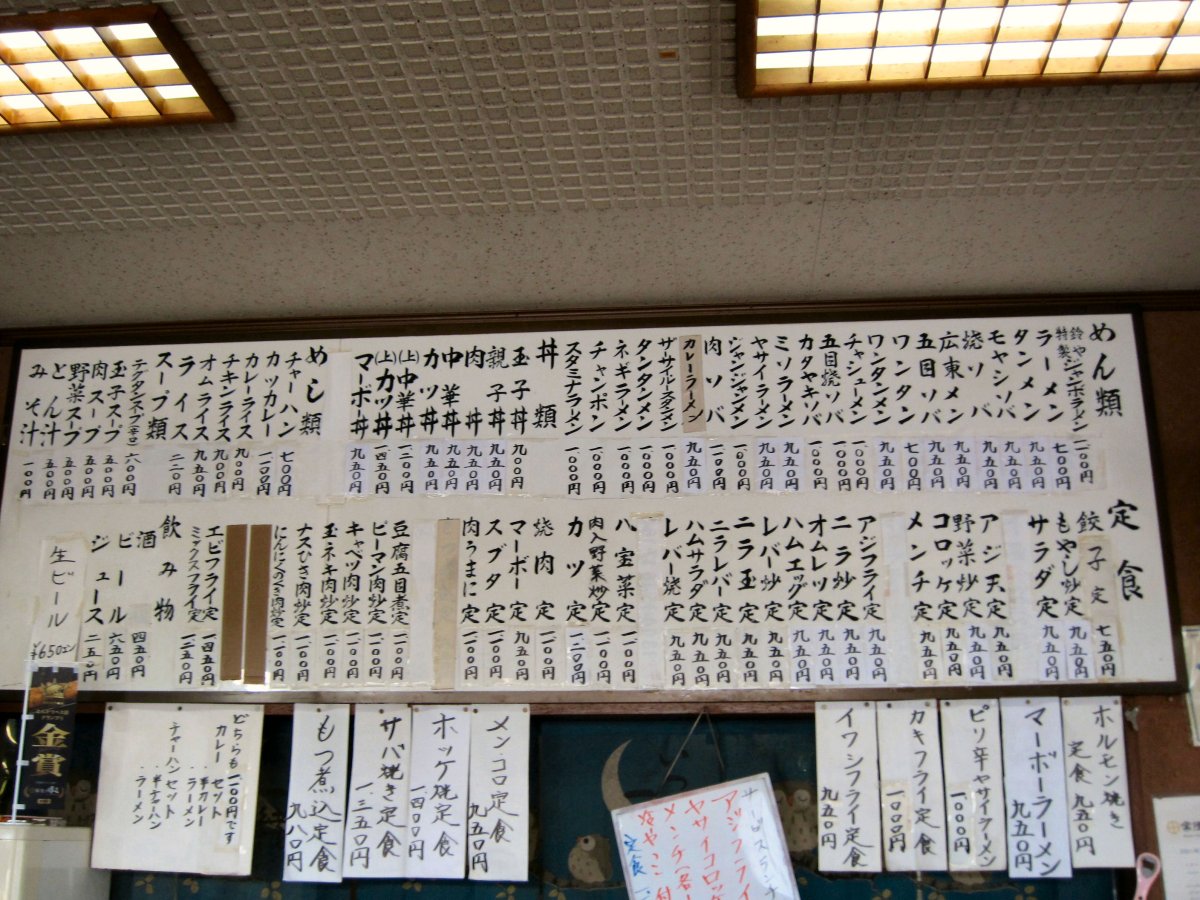 めん類
鈴や特製ジャンボラーメン 一二〇〇円
ラーメン 七〇〇円
タンメン 九五〇円
モヤシソバ 九五〇円
焼ソバ 九五〇円
広東メン 九五〇円
五目ソバ 九五〇円
ワンタン 七〇〇円
ワンタンメン 九五〇円
チャシューメン 一〇〇〇円
五目焼ソバ 一〇〇〇円
カタヤキソバ 一〇〇〇円
ミソラーメン 九五〇円
ヤサイラーメン 九五〇円
ジャンジャンメン 一〇〇〇円
肉ソバ 一一〇〇円
カレーラーメン 九五〇円
ザーサイルースータンメン 一〇〇〇円
タンタンメン 一〇〇〇円
ネギラーメン 一〇〇〇円
チャンポン 一〇〇〇円
スタミナラーメン 一〇〇〇円
丼類
玉子丼 九〇〇円
親子丼 九五〇円
肉丼 九五〇円
中華丼 九五〇円
カツ丼 九五〇円
(上)中華丼 一二〇〇円
(上)カツ丼 一四五〇円
マーボー丼 九五〇円
めし類
チャーハン 七〇〇円
カツカレー 一二〇〇円
カレーライス 九〇〇円
チキンライス 九五〇円
オムライス 九五〇円
ライス 二二〇円
スープ類
玉子スープ 五〇〇円
肉スープ 五〇〇円
野菜スープ 五〇〇円
とん汁 五〇〇円
みそ汁 一〇〇円
定食
餃子定 七五〇円
もやし炒定 九五〇円
サラダ定 九五〇円
アジ天定
野菜炒定 九五〇円
コロッケ定 九五〇円
メンチ定 九五〇円
アジフライ定 九五〇円
ニラ炒定 九五〇円
オムレツ定 九五〇円
ハムエッグ定 九五〇円
レバー炒定 九五〇円
ニラ玉定 九五〇円
ニラレバー定 九五〇円
ハムサラダ定 九五〇円
レバー焼定 九五〇円
八宝菜定 一一〇〇円
肉入野菜炒定 一一〇〇円
カツ定 一二〇〇円
焼肉定 一一〇〇円
マーボー定 九五〇円
スブタ定 一一〇〇円
肉うまに定 一一〇〇円
豆腐五目煮定 一一〇〇円
ピーマン肉炒定 一一〇〇円
キャベツ肉炒定 一一〇〇円
玉ネギ肉炒定 一一〇〇円
ナスひき肉炒定 一一〇〇円
にんにくのめき肉炒定 一一〇〇円
エビフライ定 一四五〇円
ミックスフライ定 一二五〇円
飲み物
酒 四五〇円
ビール 六五〇円
ジュース 二五〇円
生ビール ¥650エン
金賞
ホルモン焼き定食 九五〇円
マーボーラーメン 九五〇円
ピリ辛ヤサイラーメン 一〇〇〇円
カキフライ定食 一一〇〇円
イワシフライ定食 九五〇円
サービスランチ
アジフライ
ヤサイコロッケ
メンチ
冷やっこ付
定食
メンコロ定食 九五〇円
ホッケ焼定食 一、四〇〇円
サバ焼き定食 一、三五〇円
もつ煮込定食 九八〇円
どちらも一、一〇〇円です
カレーセット
・半カレー
・ラーメン
チャーハンセット
・半チャーハン
・ラーメン